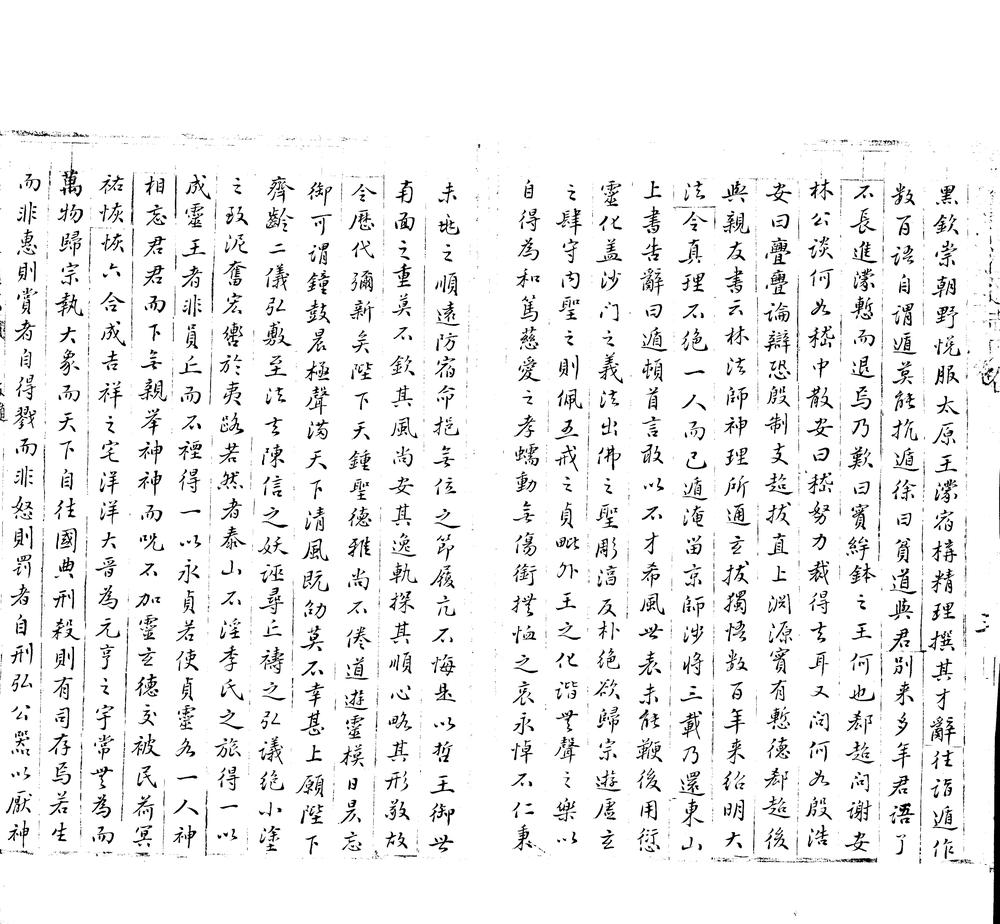 黑欽崇朝野悅服太原王濛宿構精理撰其才辭往詣遁作
数百語自謂遁莫能抗遁徐曰貧道與君別来多年君語了
不長進濛慙而退焉乃歎曰實緇鉢之王何也郄超问謝安
林公谈何如嵇中散安曰嵇努力裁得去耳又问何如殷浩
安曰亹亹論辯恐殷制支超拔直上渊源實有慙德郄超後
與親友書云林法師神理所通玄拔獨悟数百年来绍明大
法令真理不绝一人而已遁淹留京師涉将三載乃還東山
上書告辭曰遁頓首言敢以不才希風世表未能鞭後用愆
靈化盖沙门之義法出佛之聖彫淳反朴绝欲歸宗遊虚玄
之肆守内聖之則佩五戒之貞毗外王之化谐無聲之樂以
自得為和篤慈愛之孝蠕動無傷銜撫恤之哀永悼不仁秉
未兆之順遠防宿命挹無位之節履亢不悔是以哲王御世
南面之重莫不欽其風尚安其逸軌探其順心略其形敬故
令歷代彌新矣陛下天鍾聖德雅尚不倦道遊靈模日昃忘
御可謂鐘鼓晨極聲满天下清風既劭莫不幸甚上願陛下
齊齡二儀弘敷至法去陳信之妖誣尋丘禱之弘議绝小塗
之致泥奮宏轡於夷路若然者泰山不淫季氏之旅得一以
成靈王者非員丘而不禋得一以永貞若使貞靈各一人神
相忘君君而下無親举神神而呪不加靈玄德交被民荷冥
祐恢恢六合成吉祥之宅洋洋大晉為元亨之宇常無為而
萬物歸宗執大象而天下自往國典刑殺則有司存焉若生
而非惠則賞者自得戮而非怒則罰者自刑弘公器以厭神